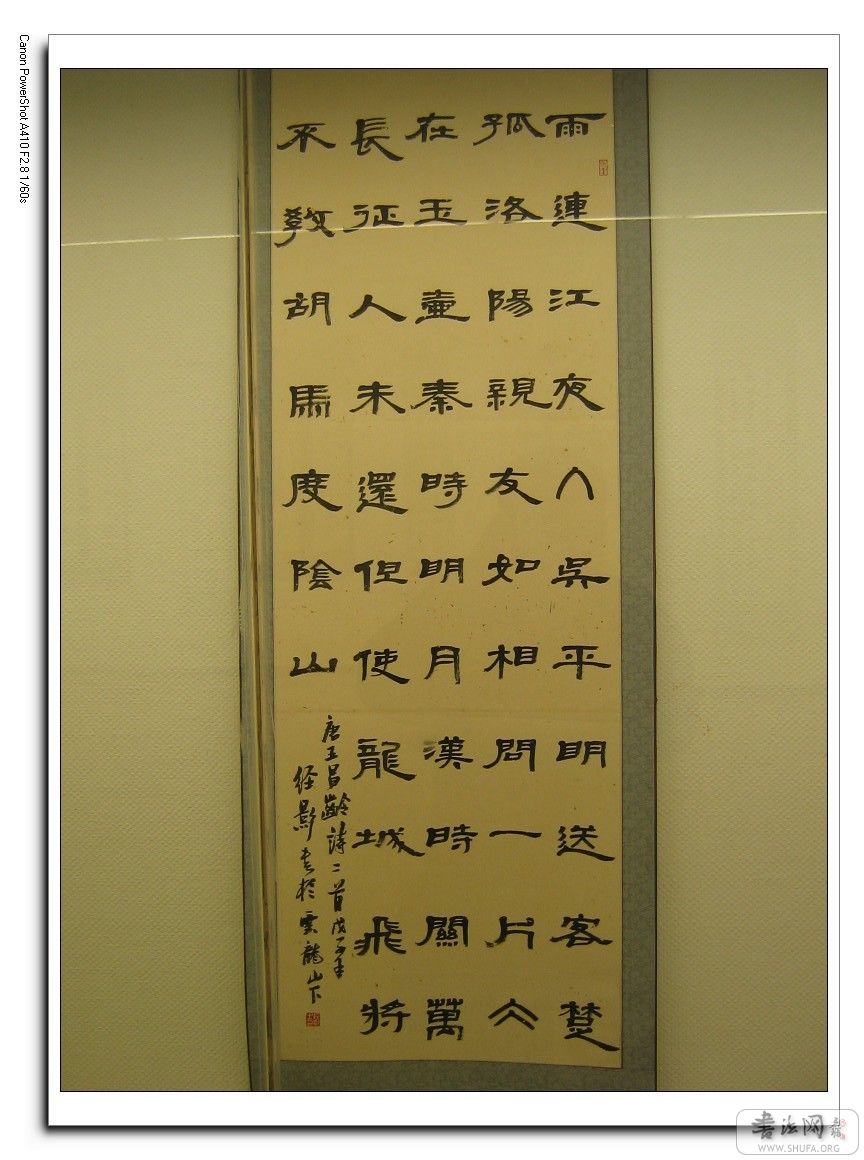 雨連江夜入吳平明送客楚
孤洛陽親友如相問一片仌
在玉壺秦時明月漢時關萬
長征人未還但使龍城飛將
不教胡馬度陰山
唐王昌齡詩二首戊子年
经影书於雲龍山下
Canon PowerShot A410 F2.8 1/60s
书法网
WWW.SHUFA.ORG